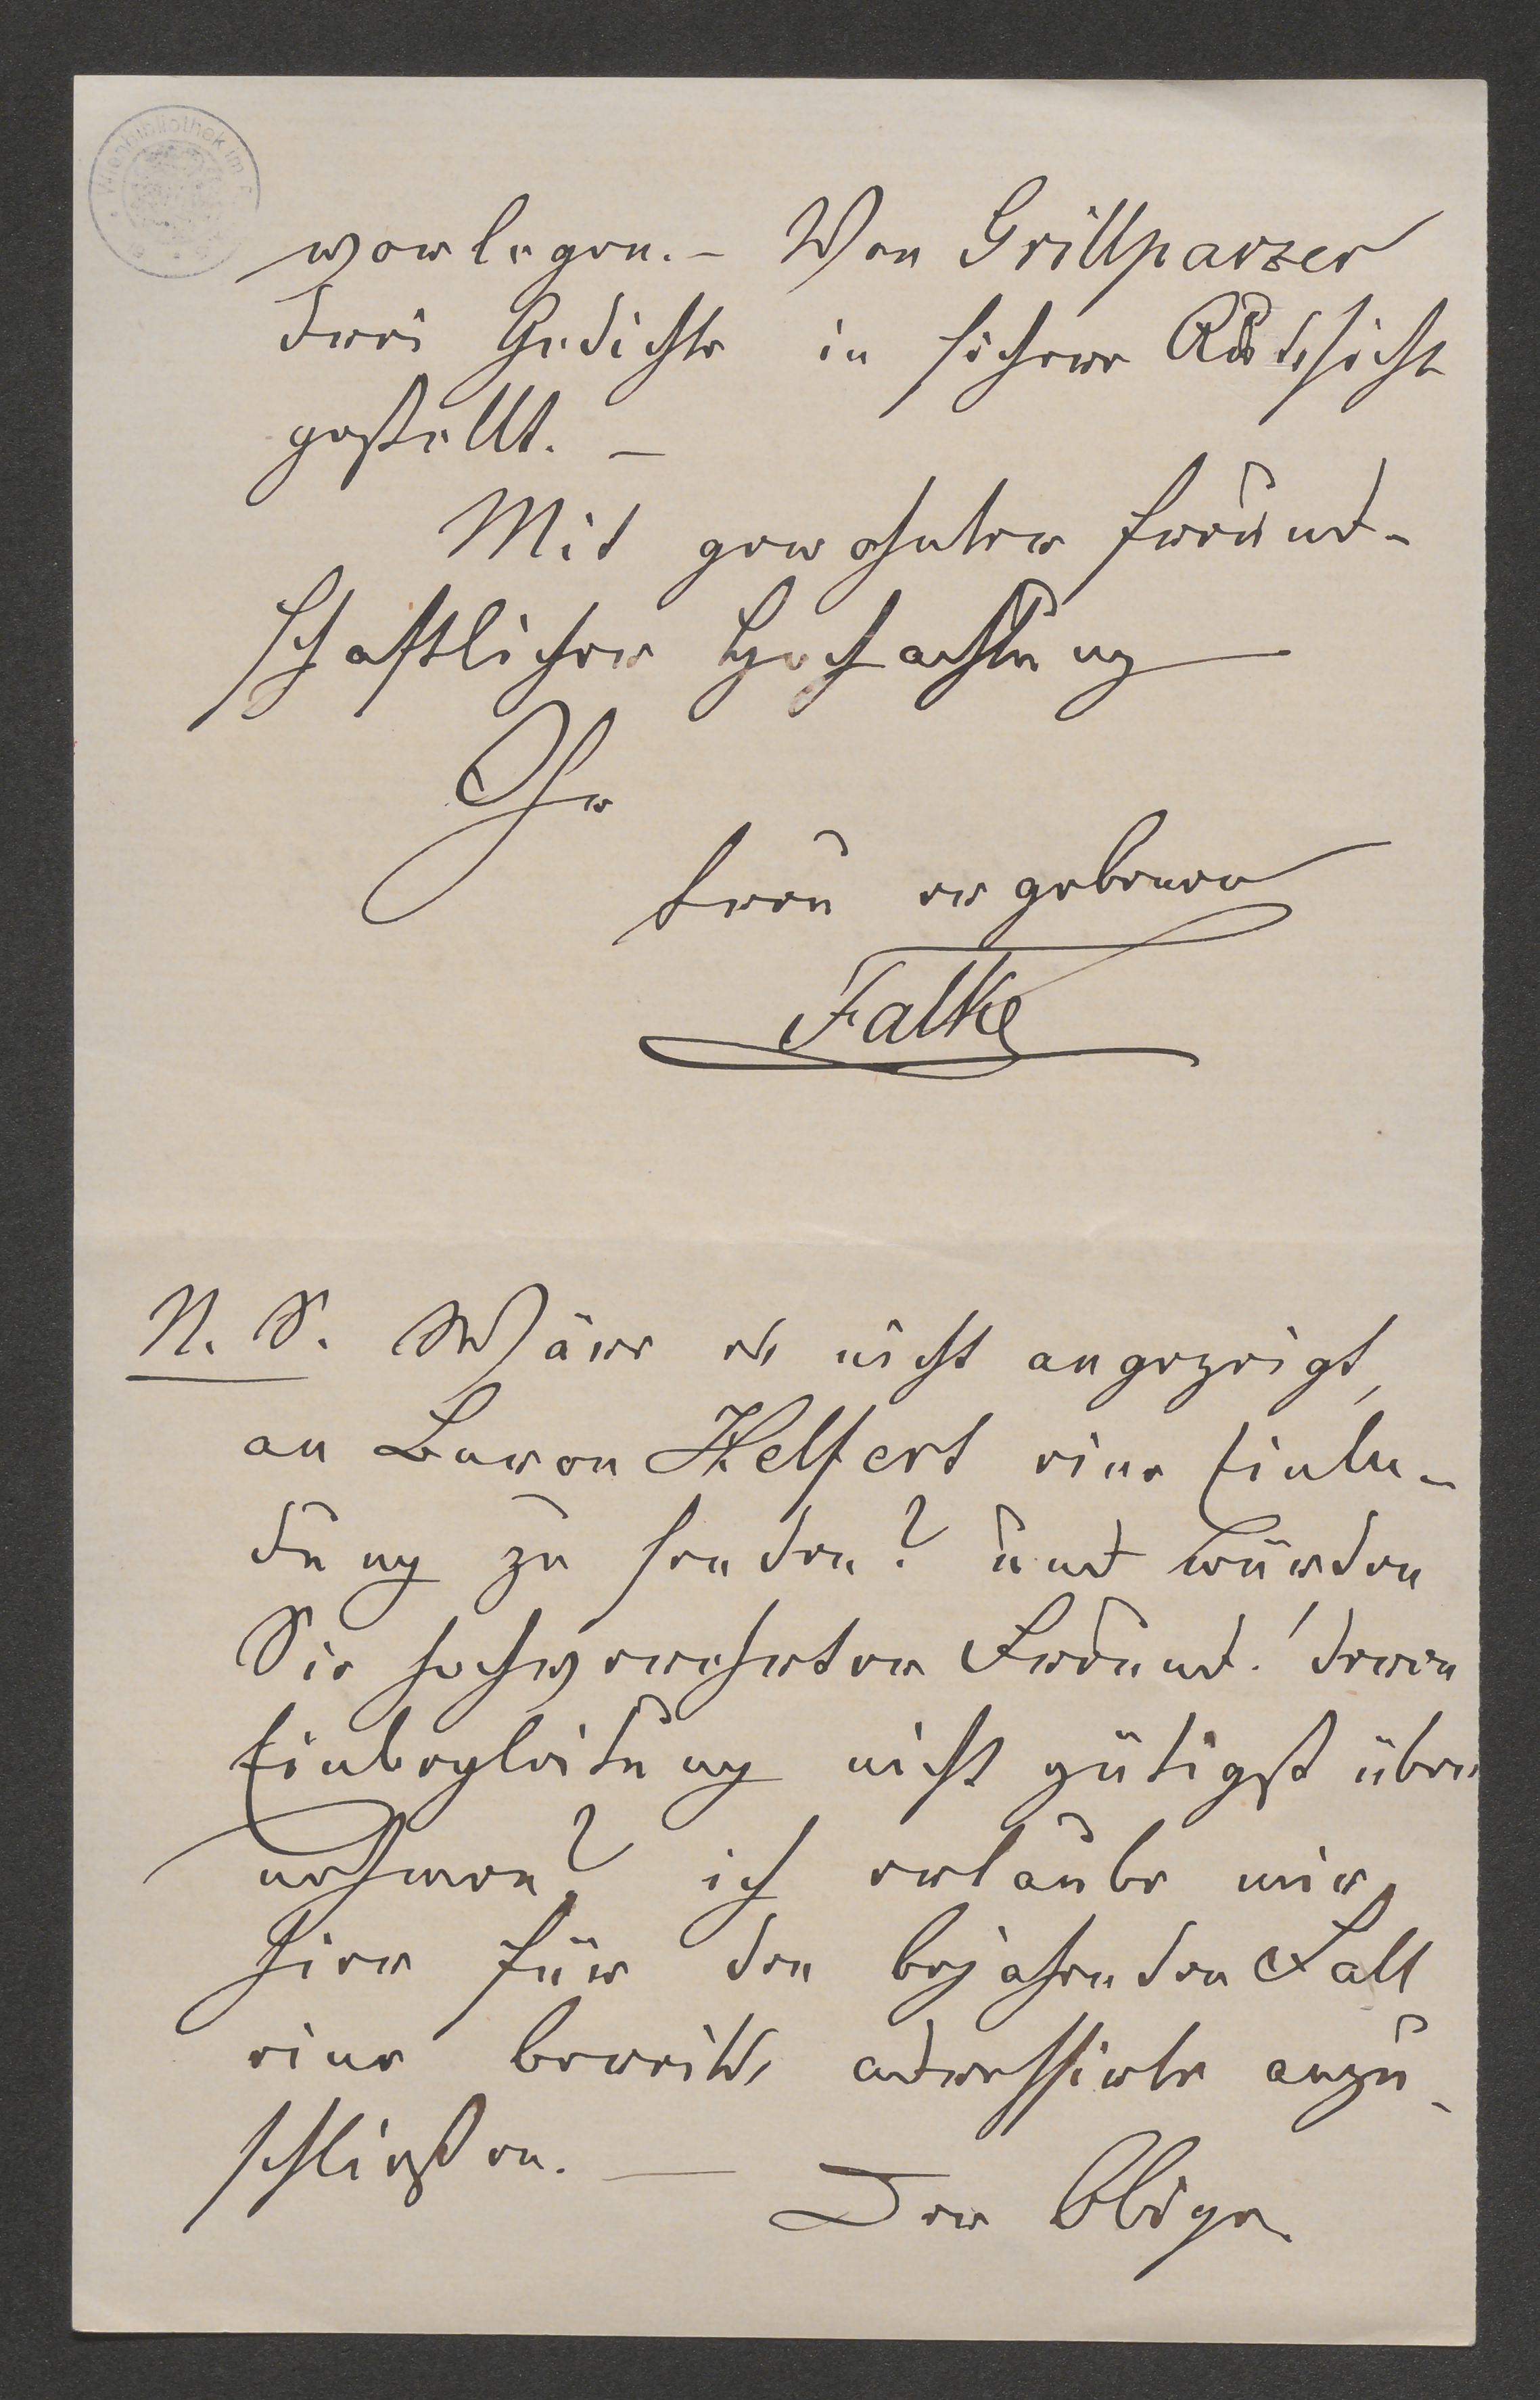 Wienbibliothek im
vorlegen. – Von Grillparzer
drei Gedichte in sichere Aussicht
gestellt. –
Mit gewohnter freund-
schaftlicher Hochachtung
Ihr
treu ergebener
Falke
N. S. Wäre es nicht angezeigt,
an Baron Helfert eine Einla-
dung zu senden? und würden
Sie hochverehrter Freund! deren
Einbegleitung nicht gütigst über
nehmen? ich erlaube mir,
hier für den bejahenden Fall
eine bereits adressirte anzu-
schließen. – Der Obige.